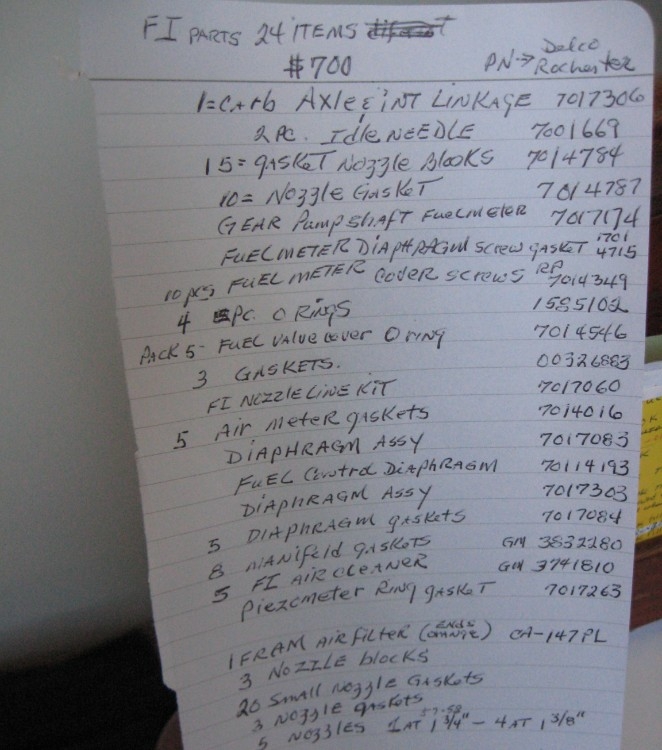 FI PARTS 24 ITEMS
$700 PN→ Delco Rochester
1=CARb AXLE & INT LINKAGE 7017306
2 PC. Idle NEEDLE 7001669
15= gASKeT Nozzle Blocks 7014784
10= Nozzle GASKET 7014787
GEAR Pump shAFT FuelmeTER 7017174
FUELMETER DiAPHRAGM SCREW gASKET 1701 4715
10 pcs FUEL METER COVER SCREWS RP 7014349
4 PC. O RiNgS 1585102
PACK 5- FUEL VALVE COVER O RiNg 7014546
3 GASKETS. 00326883
FI NOZZLE LINE KiT 7017060
5 AiR METER gASKETS 7014016
DiAPHRAGM ASSY 7017083
FuEL CONTROL DiAPHRAGM 70114193
DiAPHRAGM ASSY 7017303
5 DIAPHRAGM gASKETS 7017084
8 MANifold gASKETS GM 3832280
5 FI AIR CLEANER GM 3741810
Piezometer RiNg gASKET 7017263
1 FRAM AiR FiLTER (ENDS ORANGE) CA-147PL
3 NOZZLE blocks
20 Small Nozzle GASKETS
3 Nozzle gASKETS
5 NOZZLES 1 AT 1 3/4" - 4 AT 1 3/8"